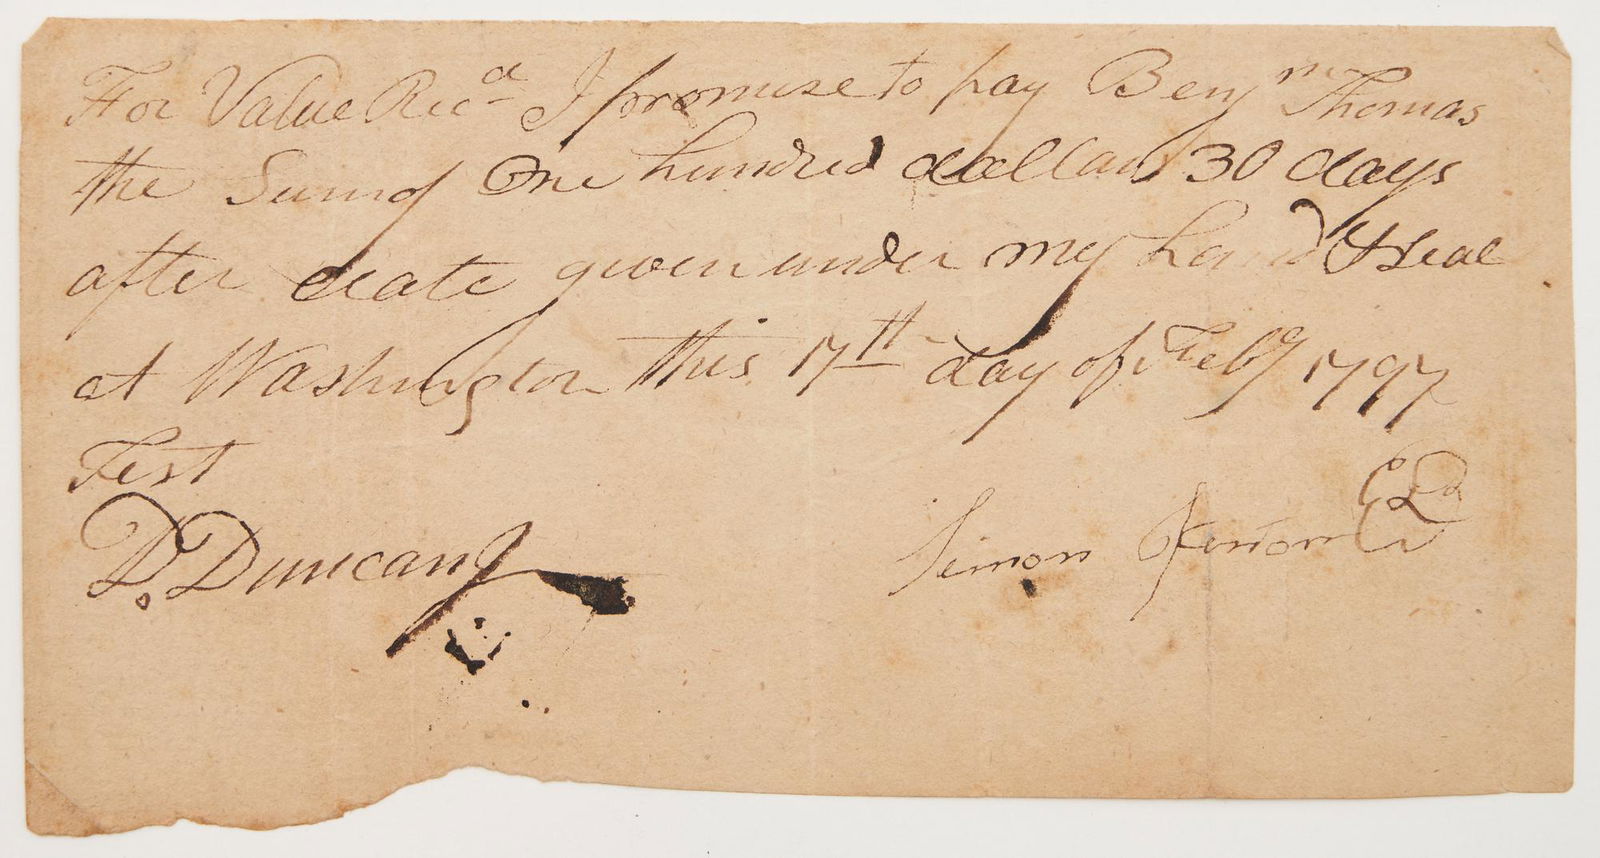 For Value Recd I promise to pay Benjn Thomas
the Sum of One hundred dollars 30 days
after date given under my hand & Seal
at Washington this 17th day of Feby 1797
Test
D. Duncan
Simon Kenton